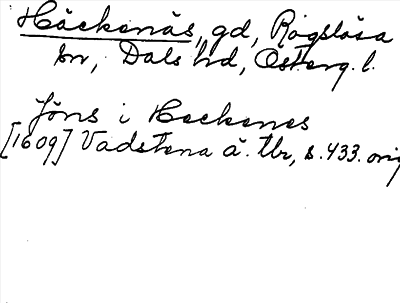 Häckenäs, gd, Rogslösa
sn, Dals hd, Österg. l.
Jöns i Heckenes
[1609] Vadstena ä. tbr, s. 433. orig